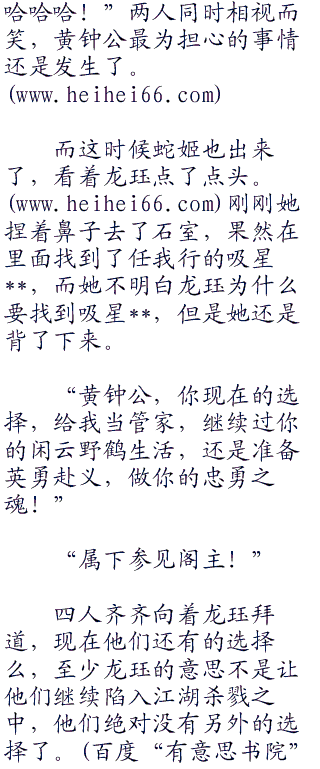 哈哈哈！”两人同时相视而
笑，黄钟公最为担心的事情
还是发生了。
(www.heihei66.com)
而这时候蛇姬也出来
了，看着龙珏点了点头。
(www.heihei66.com)刚刚她
捏着鼻子去了石室，果然在
里面找到了任我行的吸星
**，而她不明白龙珏为什么
要找到吸星**，但是她还是
背了下来。
“黄钟公，你现在的选
择，给我当管家，继续过你
的闲云野鹤生活，还是准备
英勇赴义，做你的忠勇之
魂！”
“属下参见阁主！”
四人齐齐向着龙珏拜
道，现在他们还有的选择
么，至少龙珏的意思不是让
他们继续陷入江湖杀戮之
中，他们绝对没有另外的选
择了。(百度“有意思书院”